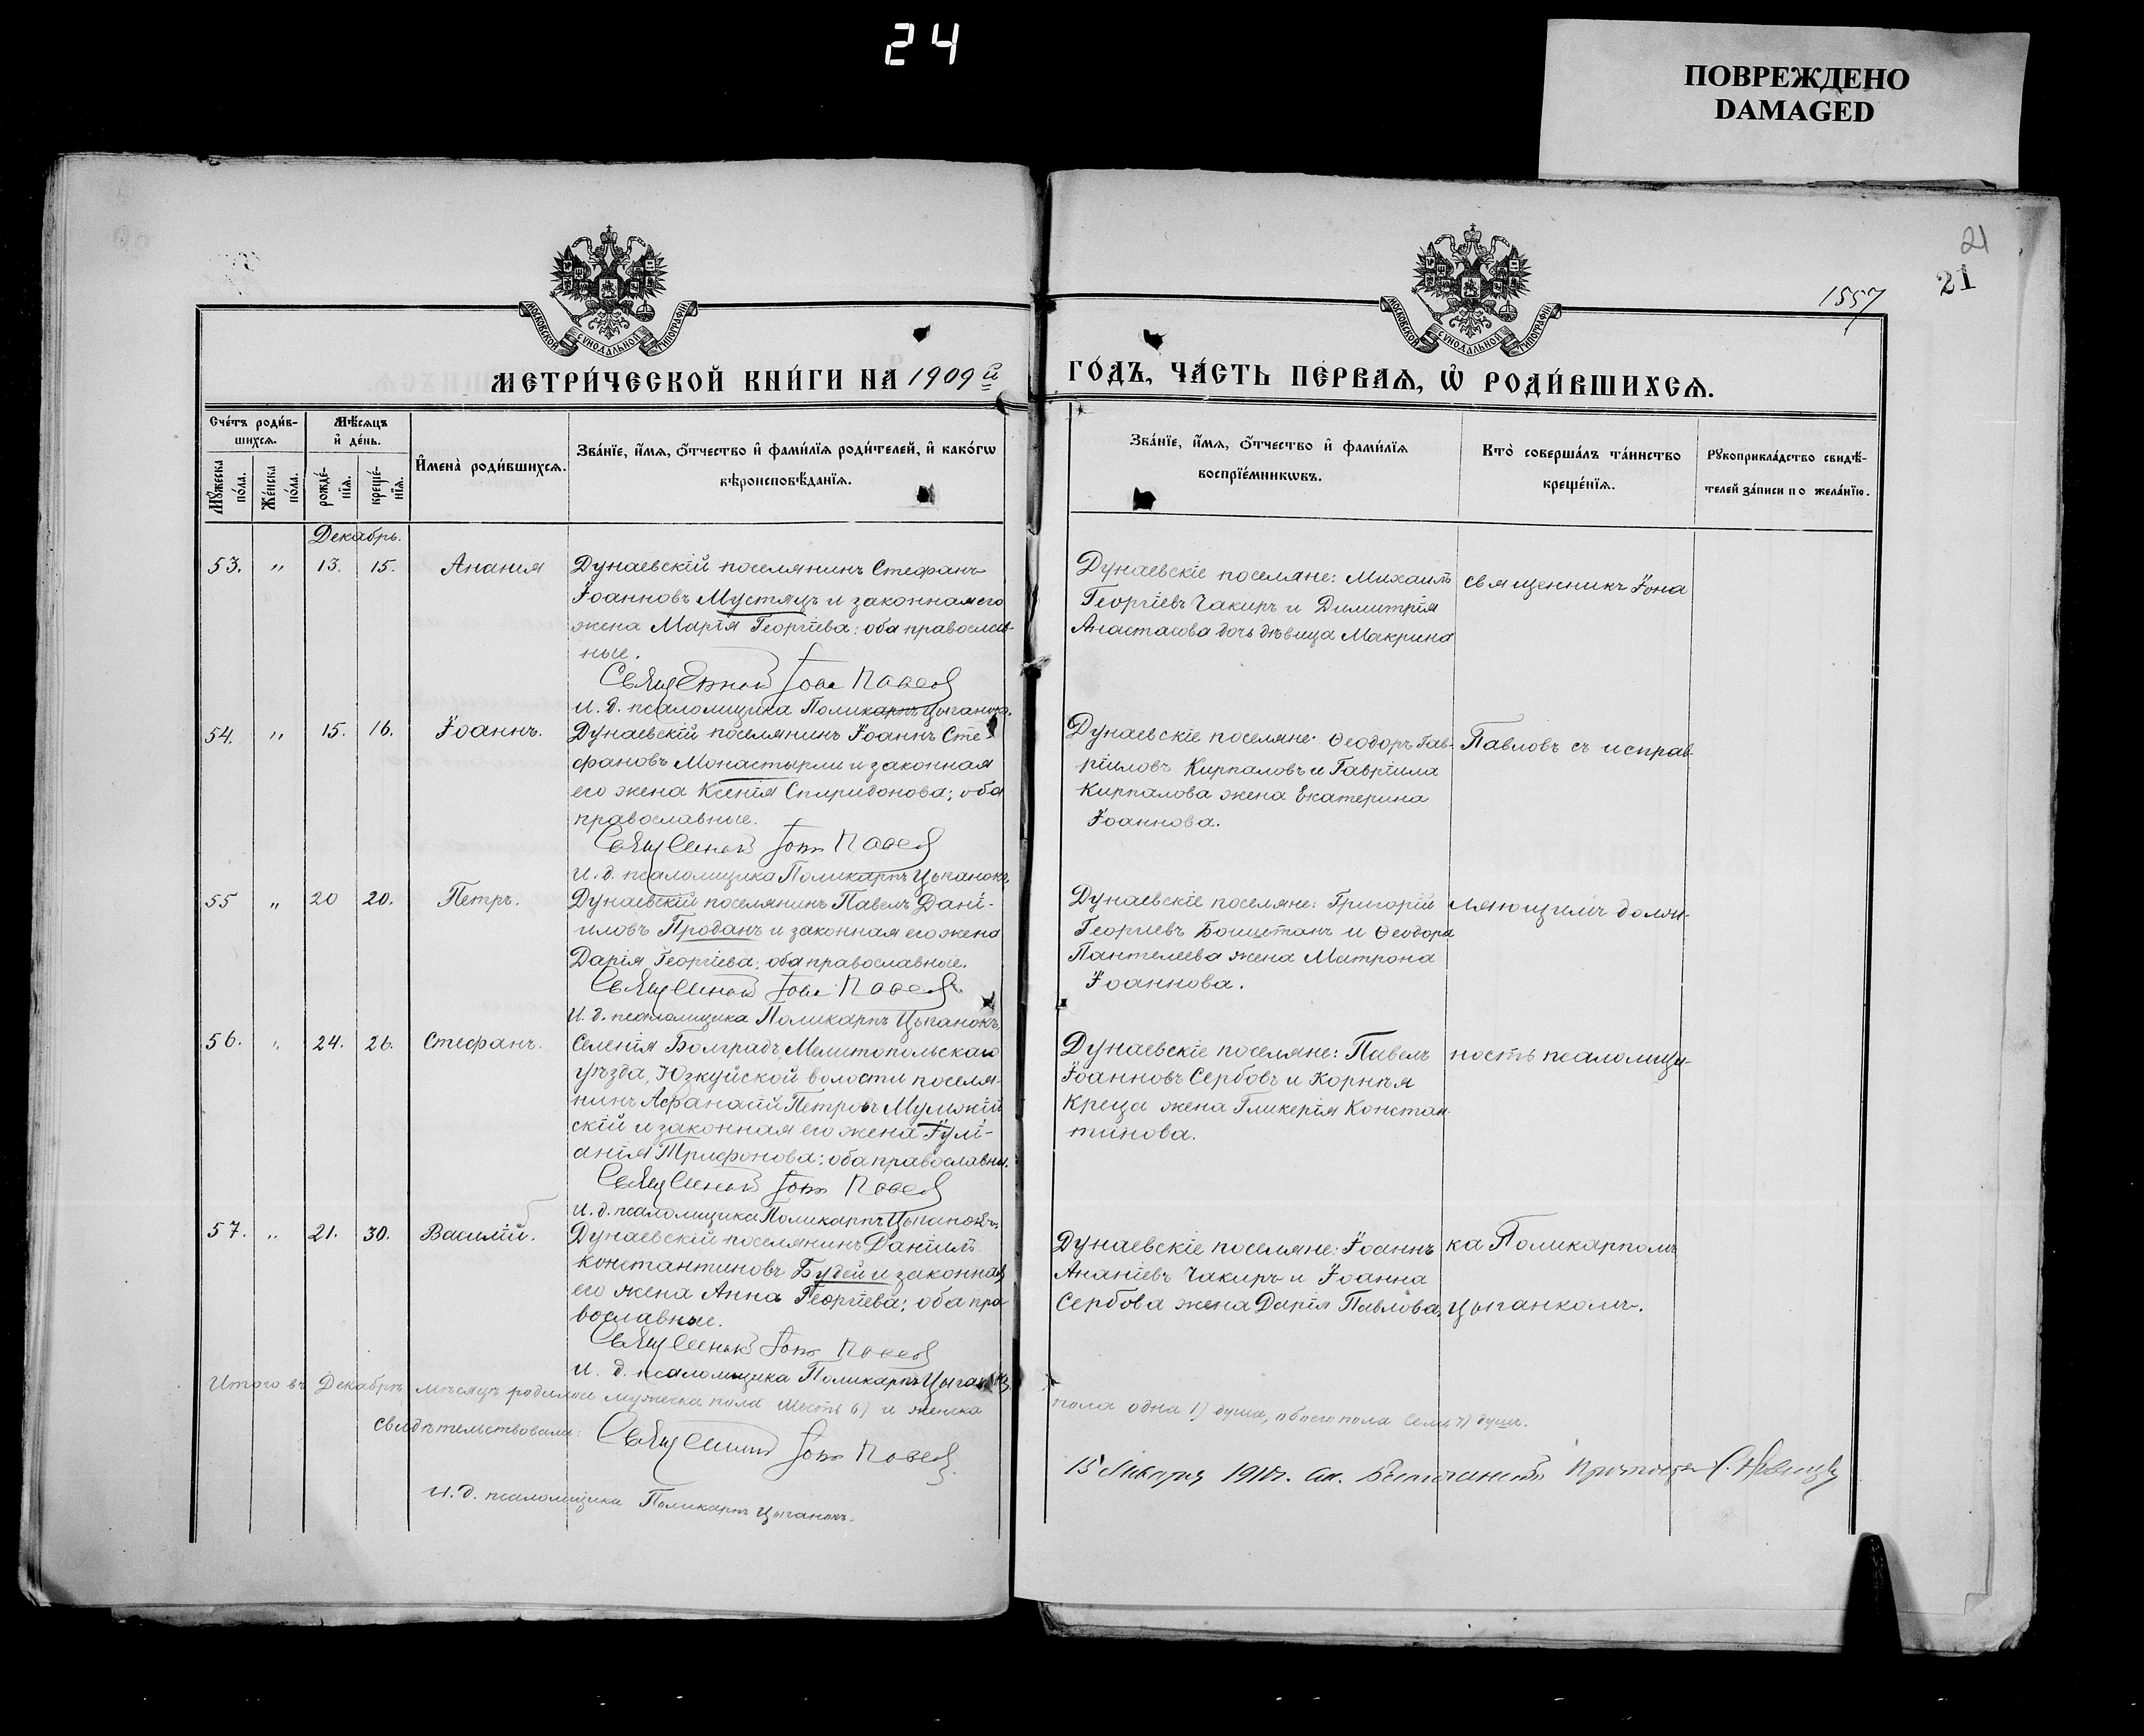 24
ПОВРЕЖДЕНО
DAMAGED
21
21
1557
МОСКОВСКОЙ СѴНОДАЛЬНОЙ ТИПОГРАФІИ
МОСКОВСКОЙ СѴНОДАЛЬНОЙ ТИПОГРАФІИ
МЕТРИ́ЧЕСКОЙ КНИ́ГИ НА 1909й
ГО́ДЪ, ЧА́СТЬ ПЕ́РВАѦ, Ѡ҆ РОДИ́ВШИХСѦ.
Сче́тъ роди́в-
шихсѧ.
Мꙋ́жеска по́ла.
Же́нска по́ла.
Мѣ́сѧцъ
и҆ де́нь.
рожде́-
нїѧ.
креще́-
нїѧ.
И҆мена̀ роди́вшихсѧ.
Зва́нїе, и҆́мѧ, ѻ҆́тчество и҆ фами́лїѧ роди́телей, и҆ како́гѡ
вѣроисповѣ́данїѧ.
Зва́нїе, и҆́мѧ, ѻ҆́тчество и҆ фами́лїѧ
воспрїе́мникѡвъ.
Кто̀ соверша́лъ та́инство
креще́нїѧ.
Рꙋкоприкла́дство свидѣ́-
телей за́писи по жела́нїю.
Декабрь.
53. " 13. 15. Анания
Дунаевскій поселянинъ Стефанъ
Іоанновъ Мустяцъ и законная его
жена Марія Георгіева: оба православ-
ные.
Священникъ Іона Павлов
И. д. псаломщика Поликарпъ Цыганокъ.
Дунаевскіе поселяне: Михаилъ
Георгіевъ Чакиръ и Димитрія
Анастасова дочь дѣвица Макрина
священникъ Іона
54. " 15. 16. Іоаннъ.
Дунаевскій поселянинъ Іоаннъ Сте-
фановъ Монастырли и законная
его жена Ксенія Спиридонова; оба
православные.
Священникъ Іона Павлов
И. д. псаломщика Поликарпъ Цыганокъ
Дунаевскіе поселяне: Ѳеодоръ Гав-
ріиловъ Кирпаловъ и Гавріила
Кирпалова жена Екатерина
Іоаннова.
Павловъ съ исправ-
55 " 20 20. Петръ.
Дунаевскій поселянинъ Павелъ Дані-
иловъ Проданъ и законная его жена
Дарія Георгіева; оба православные.
Священникъ Іона Павлов
И. д. псаломщика Поликарпъ Цыганокъ.
Дунаевскіе поселяне: Григорій
Георгіевъ и Ѳеодора
Пантелеева жена Матрона
Іоаннова.
ляющимъ долж-
56. " 24. 26. Стефанъ.
Селенія Болградъ, Мелитопольскаго
уѣзда, Юзкуйской волости поселя-
нинъ Аѳанасій Петровъ
скій и законная его жена Іулі-
анія Трифонова; оба православны.
Священникъ Іона Павлов
И. д. псаломщика Поликарпъ Цыганокъ.
Дунаевскіе поселяне: Павелъ
Іоанновъ Сербовъ и Корнѣя
Креца жена Гликерія Констан-
тинова.
ность псаломщи-
57. " 21. 30. Василій.
Дунаевскій поселянинъ Даніилъ
Константиновъ Будей и законная
его жена Анна Георгіева; оба пра-
вославные.
Священникъ Іона Павлов
И. д. псаломщика Поликарпъ Цыганокъ
Дунаевскіе поселяне: Іоаннъ
Ананіевъ Чакиръ и Іоанна
Сербова жена Дарія Павлова.
ка Поликарпомъ
Цыганкомъ.
Итого въ Декабрѣ мѣсяцѣ родилось мужеска пола шесть 6) и женска
пола одна 1) душа, обоего пола семь 7) душъ.
Свидѣтельствовали: Священникъ Іона Павлов
И. д. псаломщика Поликарпъ Цыганокъ.
15 Января 1910г.